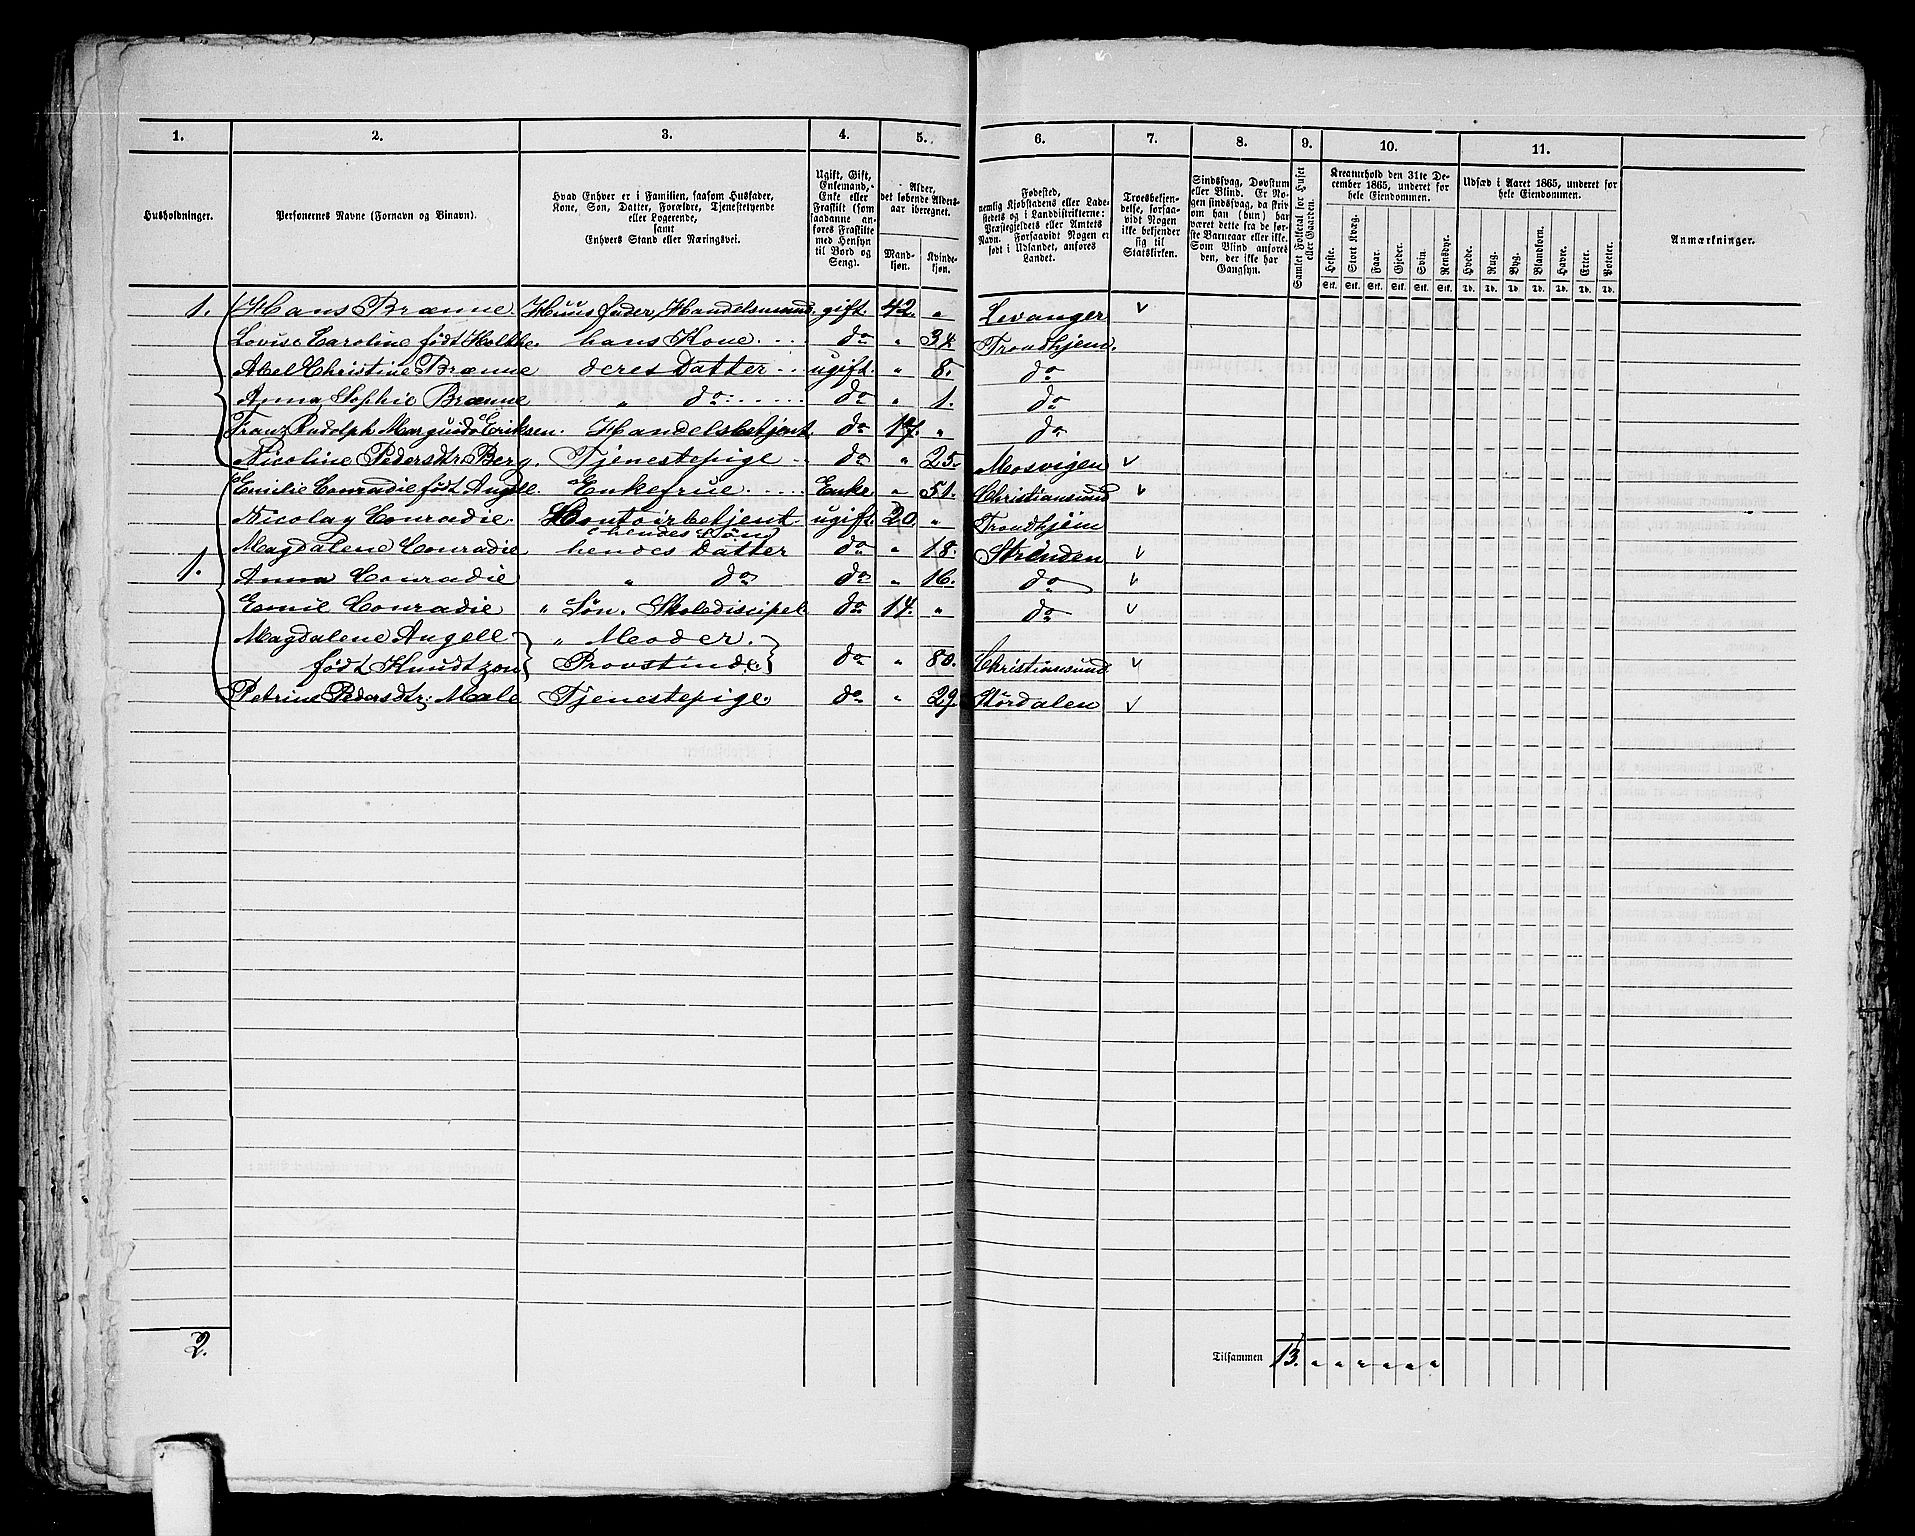 1. 2. 3. 4. 5. 6. 7. 8. 9. 10. 11.
Husholdninger.
Personernes Navne (Fornavn og Binavn).
Hvad Enhver er i Familien, saasom Husfader,
Kone, Søn, Datter, Forældre, Tjenestetyende
eller Logerende,
samt
Enhvers Stand eller Næringsvei.
Ugift, Gift,
Enkemand,
Enke eller
Fraskilt (som
saadanne an-
føres Fraskilte
med Hensyn
til Bord og
Seng).
Alder,
det løbende Alders-
aar iberegnet.
Mand-
kjøn.
Kvinde-
kjøn.
Fødested,
nemlig Kjøbstadens eller Lade-
stedets og i Landdistrikterne:
Præstegjeldets eller Amtets
Navn. Forsaavidt Nogen er
født i Udlandet, anføres
Landet.
Troesbekjen-
delse, forsaa-
vidt Nogen
ikke bekjender
sig til
Statskirken.
Sindssvag, Døvstum
eller Blind. Er No-
gen sindssvag, da skriv
om han (hun) har
været dette fra de før-
ste Barneaar eller ikke.
Som Blind anføres
den, der ikke har
Gangsyn.
Samlet Folketal for Huset
eller Gaarden.
Kreaturhold den 31te De-
cember 1865, underet for
hele Eiendommen.
Heste. Stort Kvæg. Faar. Gjeder. Svin. Rensdyr.
Stk. Stk. Stk. Stk. Stk. Stk.
Udsæd i Aaret 1865, underet for
hele Eiendommen.
Hvede. Rug. Byg. Blandkorn. Havre. Erter. Poteter.
Td. Td. Td. Td. Td. Td. Td.
Anmærkninger.
1. Hans Brænne Huusfader, Handelsmand. gift. 42. " Levanger v
Lovise Caroline født Holtke. hans Kone. do " 34 Trondhjem.
Abel Christine Brænne deres Datter ugift. " 8. do
Anna Sophie Brænne " do do " 1. do
Franz Rudolph Eriksen. Handelsbetjent. do 17. " do
Nicoline Pedersdtr. Berg. Tjenestepige do " 25. Mosvigen v
Emilie Conradie født Angell. Enkefrue. Enke " 51. Christiansund v
Nicolay Conradie. Kontoirbetjent. ugift. 20. " Trondhjem
hendes Søn
Magdalene Conradie hendes Datter do " 18. Strinden v
1. Anna Conradie " do do " 16. do v
Emil Conradie " Søn. Skolediscipel do 14. " do v
Magdalene Angell " Moder.
født Knudtzon Provstinde. do " 80. Christiansund v
Petrine Pedersdtr: Mæle Tjenestepige. do " 29. Størdalen v
2.
Tilsammen 13. " " " " " "